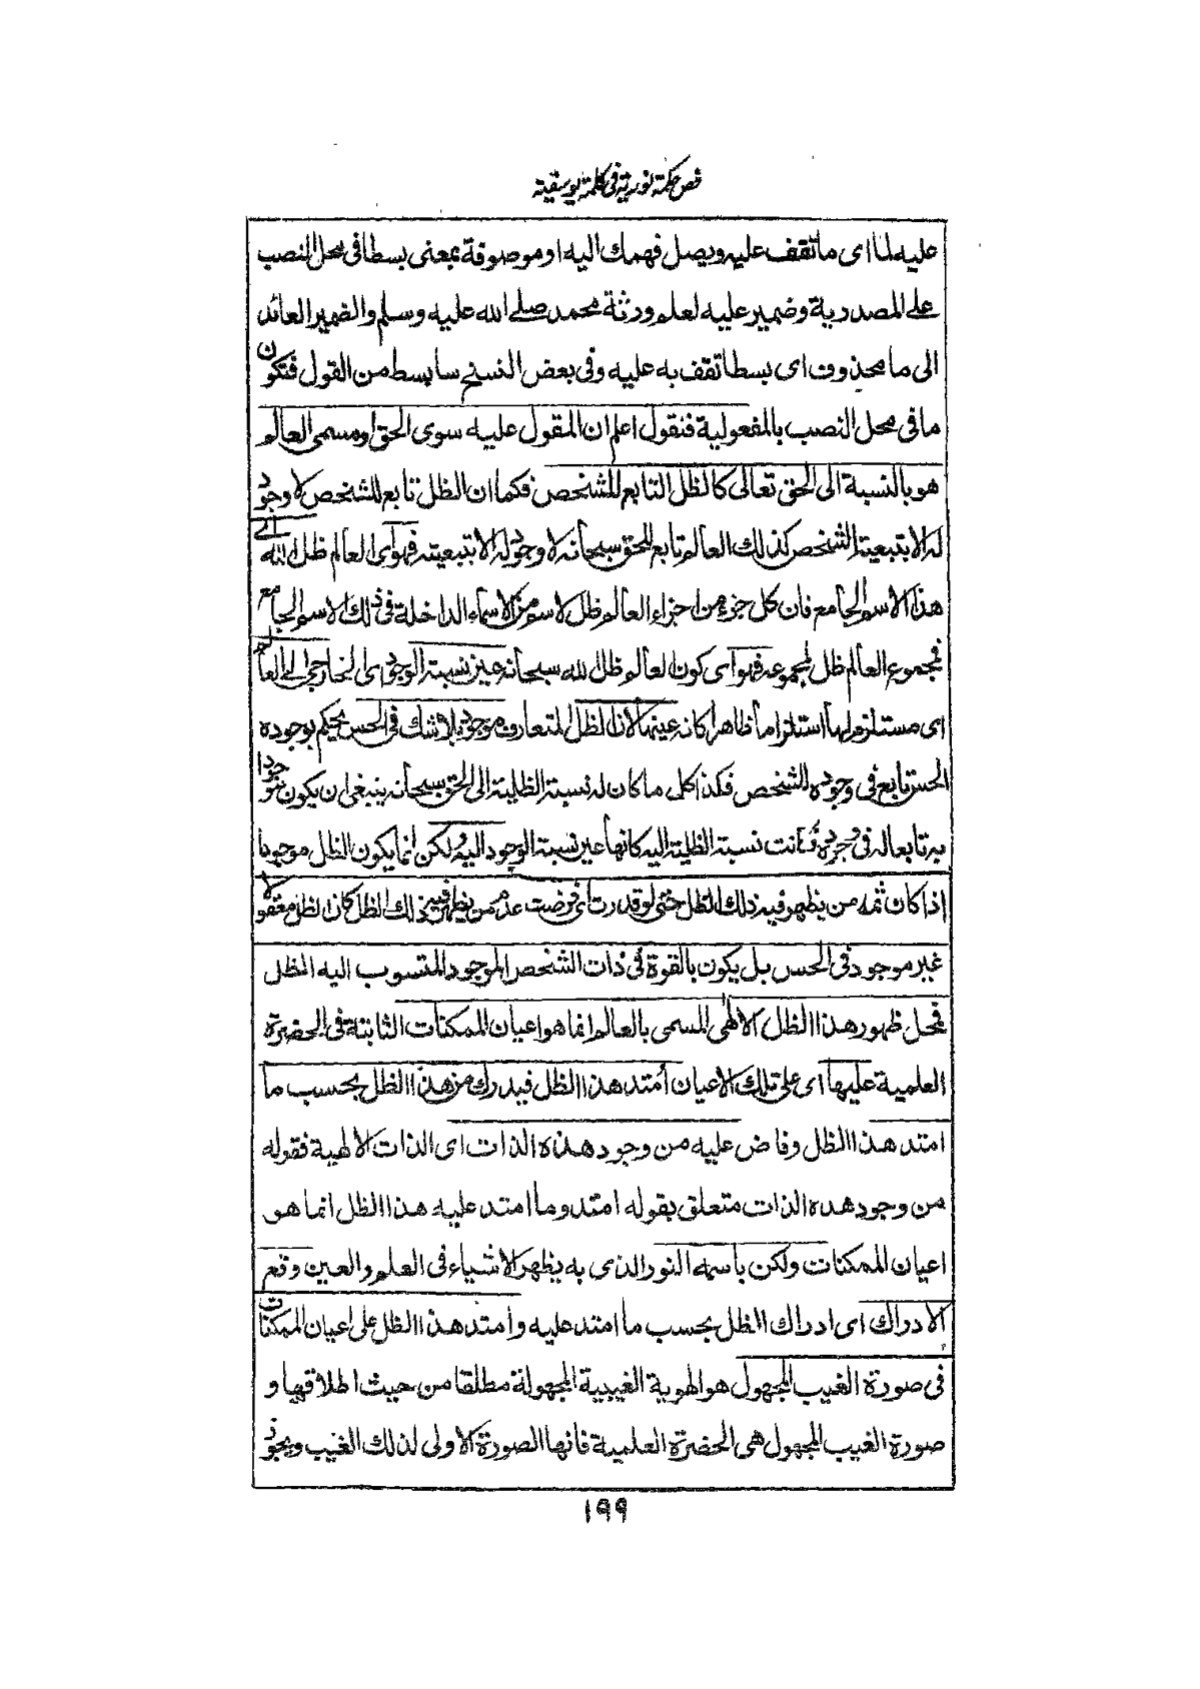 فص حكمة نورية فى كلمة يوسفية
عليه لما اى ما تقف عليه ويصل فهمك اليه او موصوفة بمعنى بسطا فى محل النصب
على المصدرية وضمير عليه لعلم ورثة محمد صلى الله عليه وسلم والضمير العائد
الى ما محذوف اى بسطا تقف به عليه وفى بعض النسخ سابسط من القول فتكون
ما فى محل النصب بالمفعولية فنقول اعلم ان المقول عليه سوى الحق او مسمى العالم
هو بالنسبة الى الحق تعالى كالظل التابع للشخص فكما ان الظل تابع للشخص لا وجود
له الا بتبعية الشخص كذلك العالم تابع للحق سبحانه لا وجود له الا بتبعيته فهو اى العالم ظل الله اى
هذا الاسم الجامع فان كل جزء من اجزاء العالم ظل لاسم من الاسماء الداخلة فى ذلك الاسم الجامع
فمجموع العالم ظل لمجموعه فهو اى كون العالم ظل الله سبحانه عين نسبة الوجود اى الخارجى الى العالم
اى مستلزم لها استلزاما ظاهرا كانه عينها لان الظل المتعارف موجود بلا شك فى الحس يحكم بوجوده
الحس تابع فى وجوده للشخص فكذا كلى ما كان له نسبة الظلية الى الحق سبحانه ينبغى ان يكون موجودا
به تابعا له فى وجوده فكانت نسبة الظلية اليه كانها عين نسبة الوجود اليه ولكن انما يكون الظل موجودا
اذا كان ثمه من يظهر فيه ذلك الظل حتى لو قدرت اى فرضت عدم من يظهر فيه ذلك الظل كان الظل معقولا
غير موجود فى الحس بل يكون بالقوة فى ذات الشخص الموجود المنسوب اليه الظل
فمحل ظهور هذا الظل الالهى المسمى بالعالم انما هو اعيان الممكنات الثابتة فى الحضرة
العلمية عليها اى على تلك الاعيان امتد هذا الظل فيدرك من هذا الظل بحسب ما
امتد هذا الظل وفاض عليه من وجود هذه الذات اى الذات الالهية فقوله
من وجود هذه الذات متعلق بقوله امتد وما امتد عليه هذا الظل انما هو
اعيان الممكنات ولكن باسمه النور الذى به يظهر الاشياء فى العلم والعين وقع
الادراك اى ادراك الظل بحسب ما امتد عليه وامتد هذا الظل على اعيان الممكنات
فى صورة الغيب المجهول هو الهوية الغيبية المجهولة مطلقا من حيث اطلاقها و
صورة الغيب المجهول هى الحضرة العلمية فانها الصورة الاولى لذلك الغيب ويجوز
١٩٩